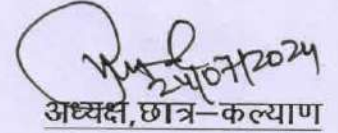 24/07/2024
अध्यक्ष, छात्र-कल्याण